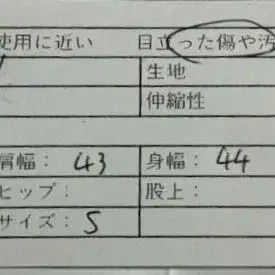 使用に近い 目立った傷や汚
生地
伸縮性
肩幅: 43 身幅: 44
ヒップ: 股上:
サイズ: S